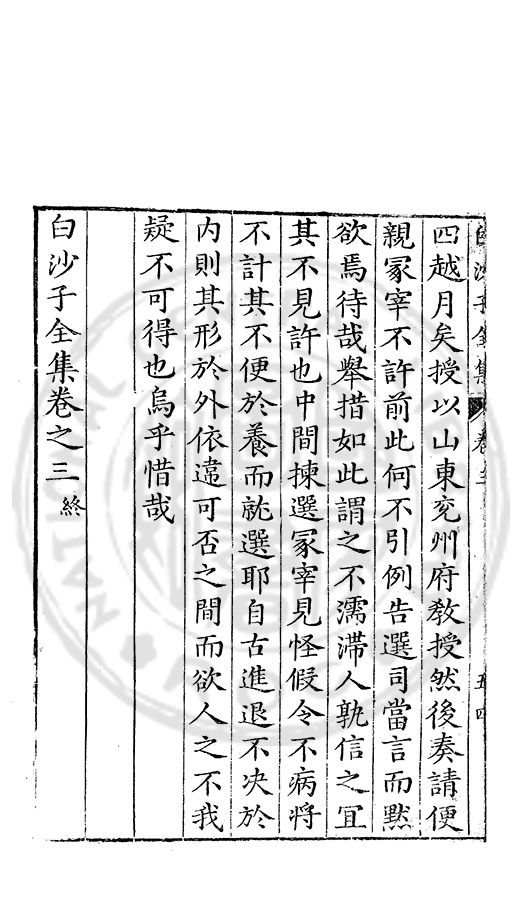 白沙子全集 卷三 五四
四越月矣授以山東兖州府教授然後奏請便
親冢宰不許前此何不引例告選司當言而黙
欲焉待哉舉措如此謂之不濡滯人孰信之冝
其不見許也中間揀選冢宰見怪假令不病將
不計其不便於養而就選耶自古進退不决於
内則其形於外依違可否之間而欲人之不我
疑不可得也烏乎惜哉
白沙子全集卷之三終